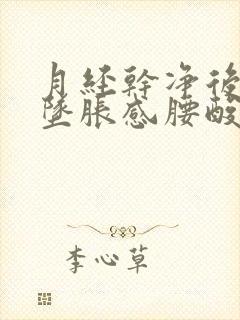 月经幹净後
墜脹感腰酸
李心草